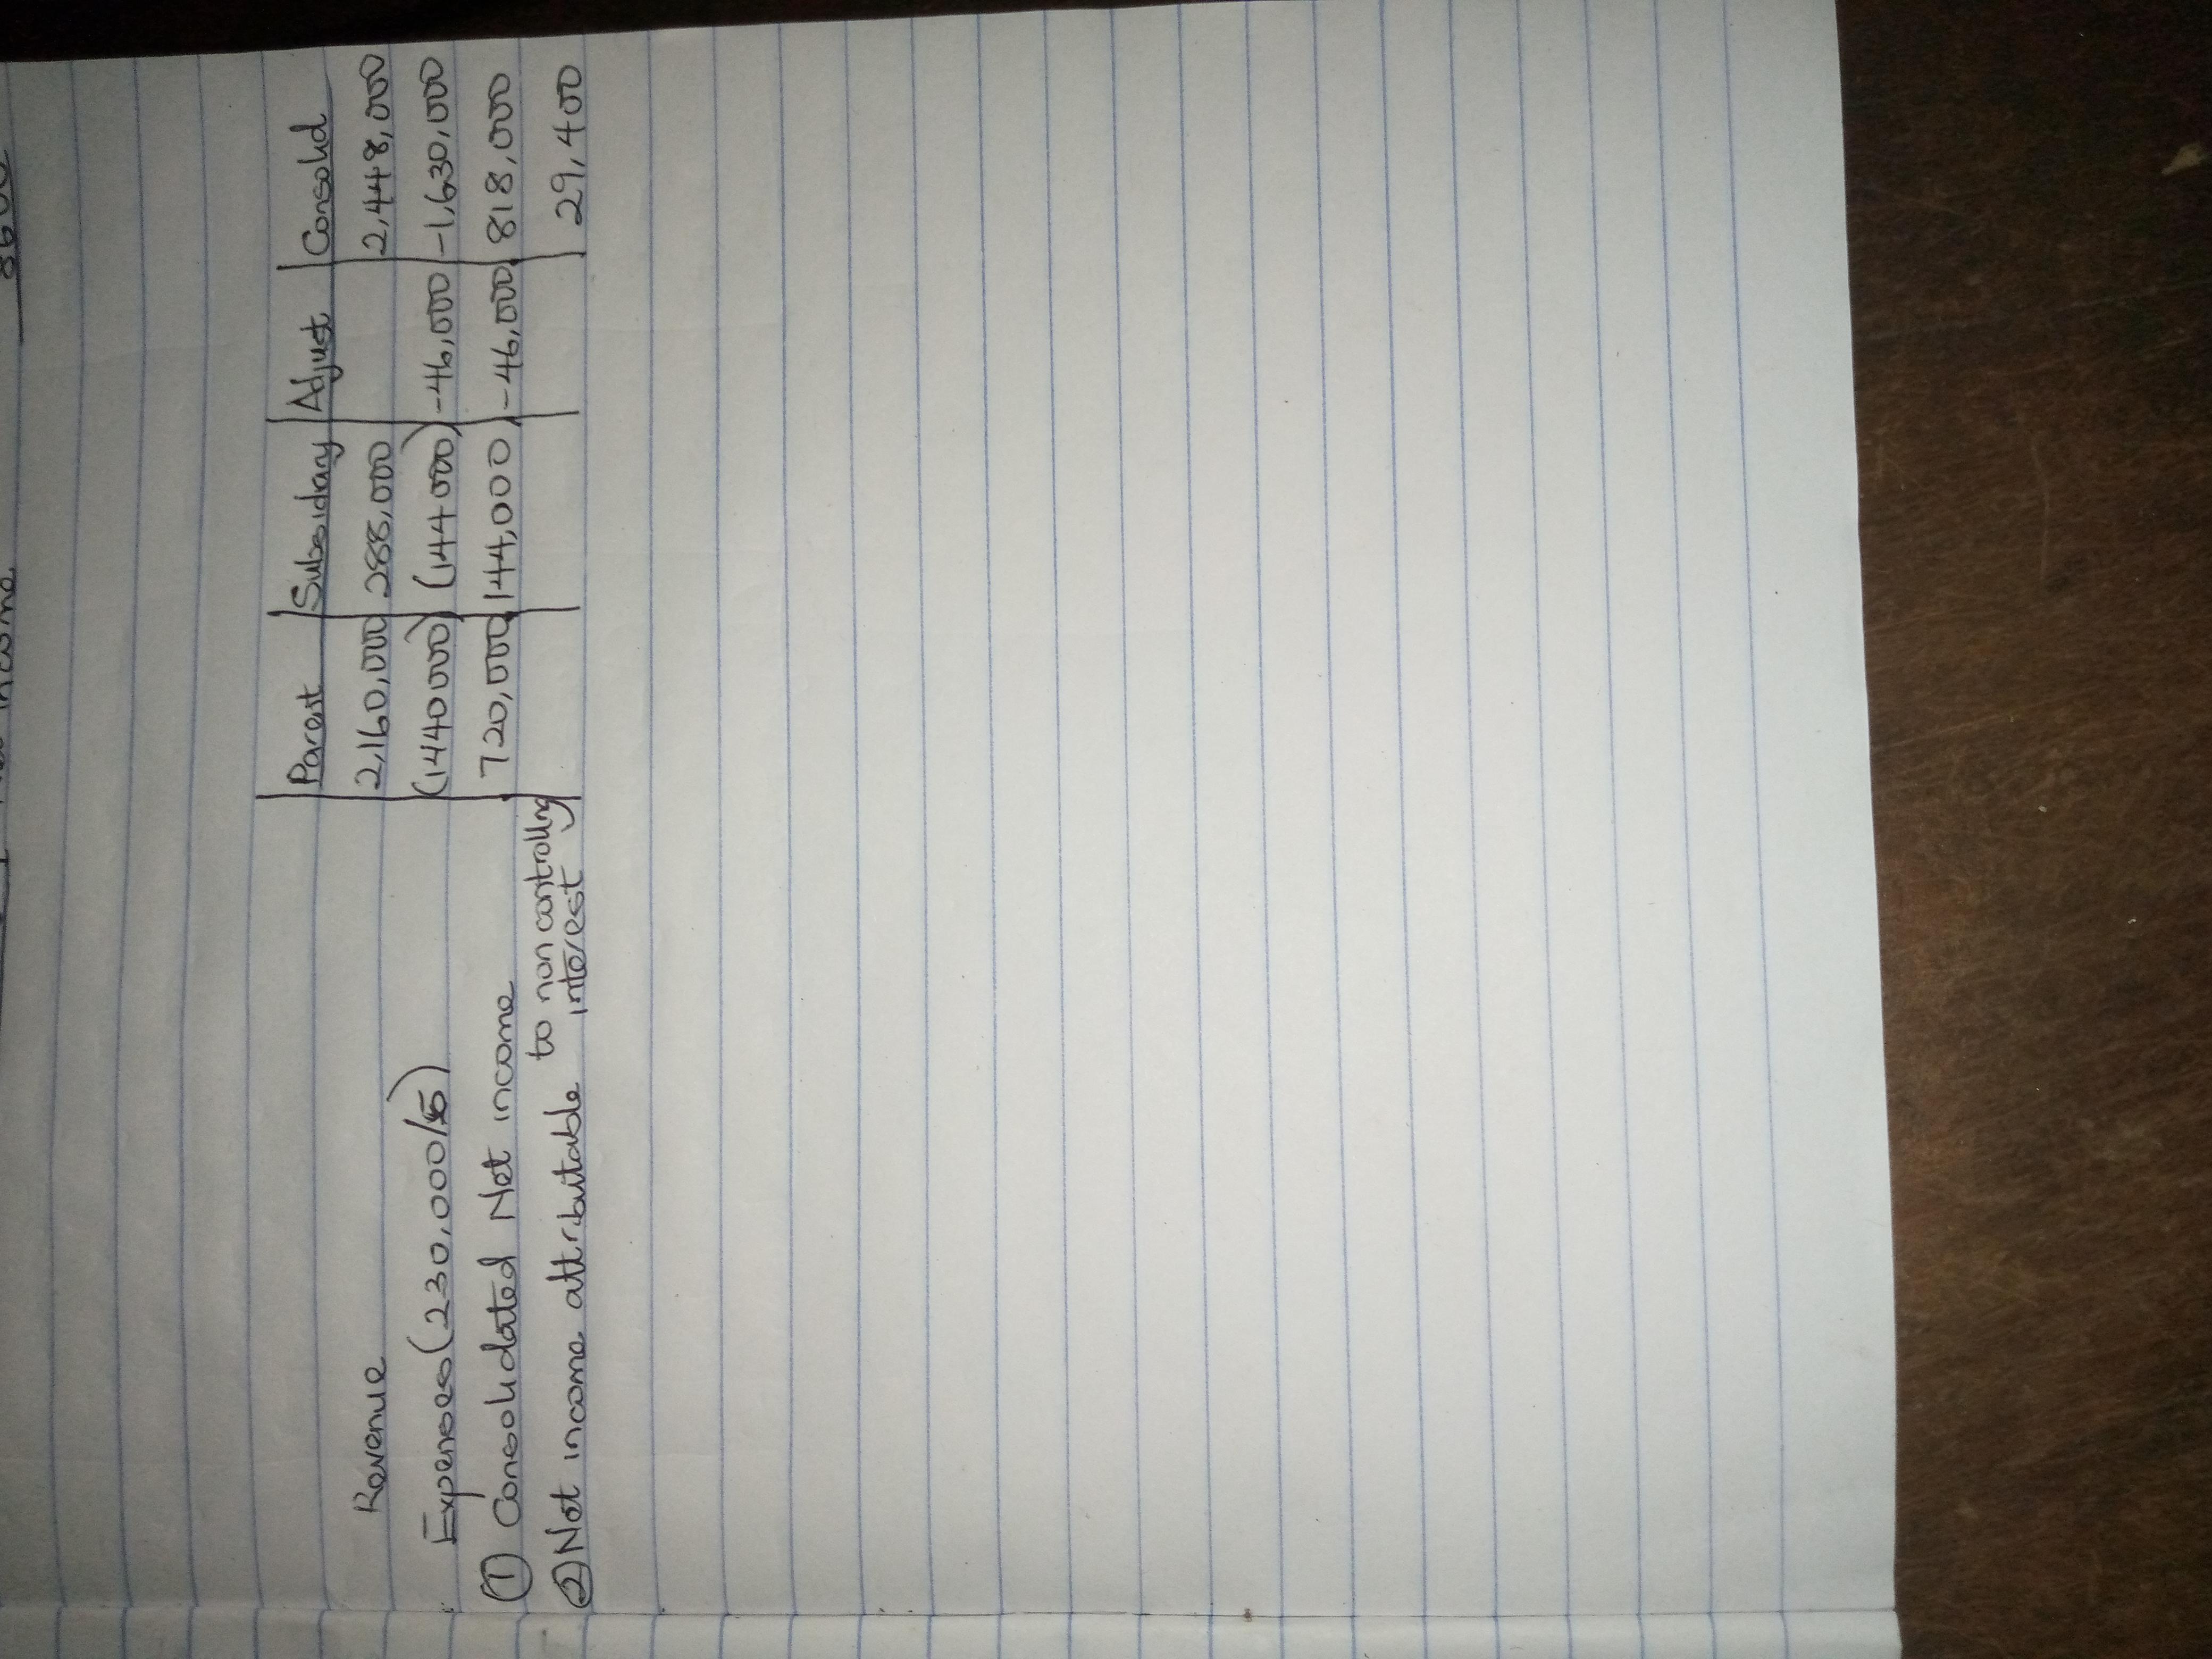 8600
Parent Subsidiary Adjust Consolid
Revenue 2,160,000 288,000 2,448,000
Expenses (230,000/5) (1440000) (144000) -46,000 -1,630,000
① Consolidated Net income 720,000 144,000 -46,000 818,000
② Net income attributable to non controlling interest 29,400